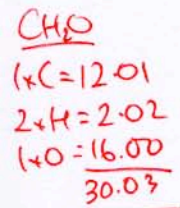 CH₂O
1×C=12.01
2×H=2.02
1×O=16.00
30.03